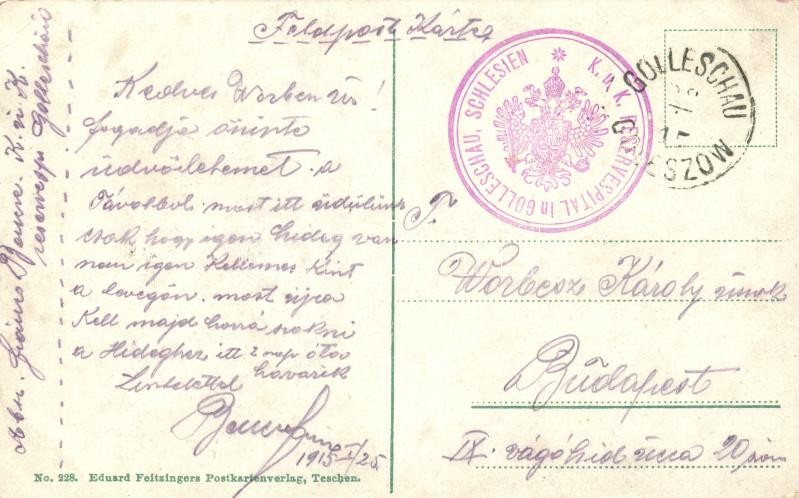 Feldpost Kártya
Kedves Worben úr!
fogadja őszinte
üdvözletemet a
Távolbol most itt üdülünk
csak hogy igen hideg van
nem igen Kellemes Kint
a levegőn. most újra
Kell majd hozzá szokni
a Hideghez itt 2 nap óta
havazik
Tisztelettel
1915 I/25.
Abs.
K. u. K.
reservesp Golleschau
K. u. K. RESERVESPITAL in GOLLESCHAU, SCHLESIEN
GOLLESCHAU
GOLESZÓW
T.
Worbesz Károly úrnak
Budapest
IX. vágóhid ucca 20 szám
No. 228. Eduard Feitzingers Postkartenverlag, Teschen.